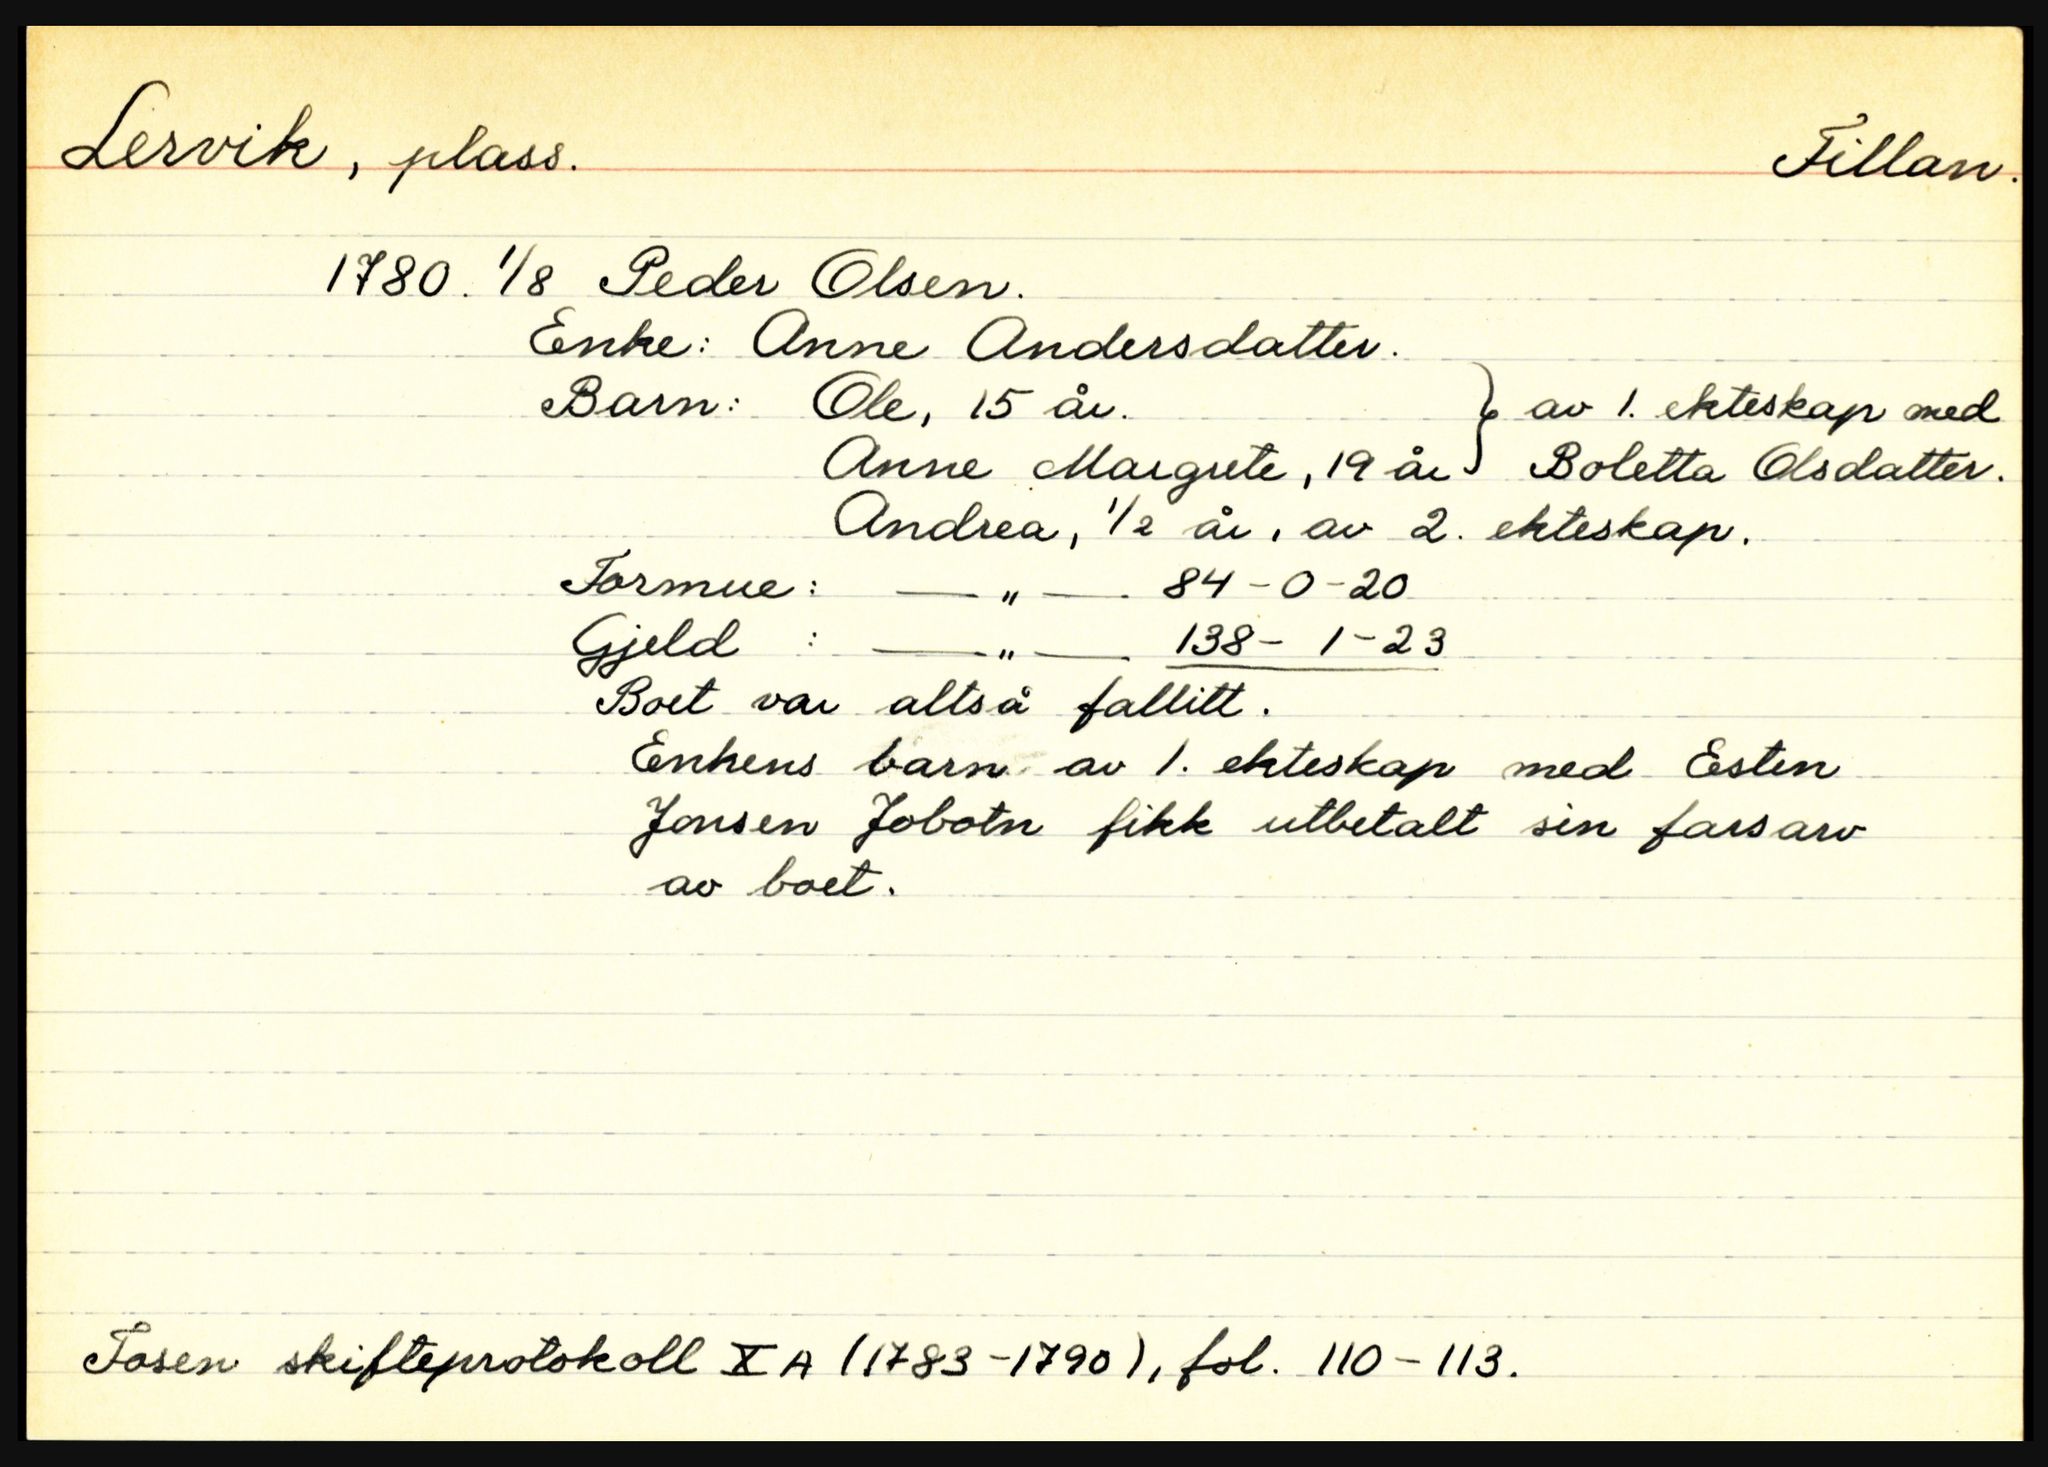 Lervik, plass. Fillan.
1780. 1/8 Peder Olsen.
Enke: Anne Andersdatter.
Barn: Ole, 15 år. } av 1. ekteskap med
Anne Margrete, 19 år } Boletta Olsdatter.
Andrea, 1/2 år, av 2. ekteskap.
Formue: — " — 84-0-20
Gjeld : — " — 138-1-23
Boet var altså fallitt.
Enkens barn av 1. ekteskap med Esten
Jonsen Jobotn fikk utbetalt sin farsarv
av boet.
Fosen skifteprotokoll X A (1783-1790), fol. 110-113.